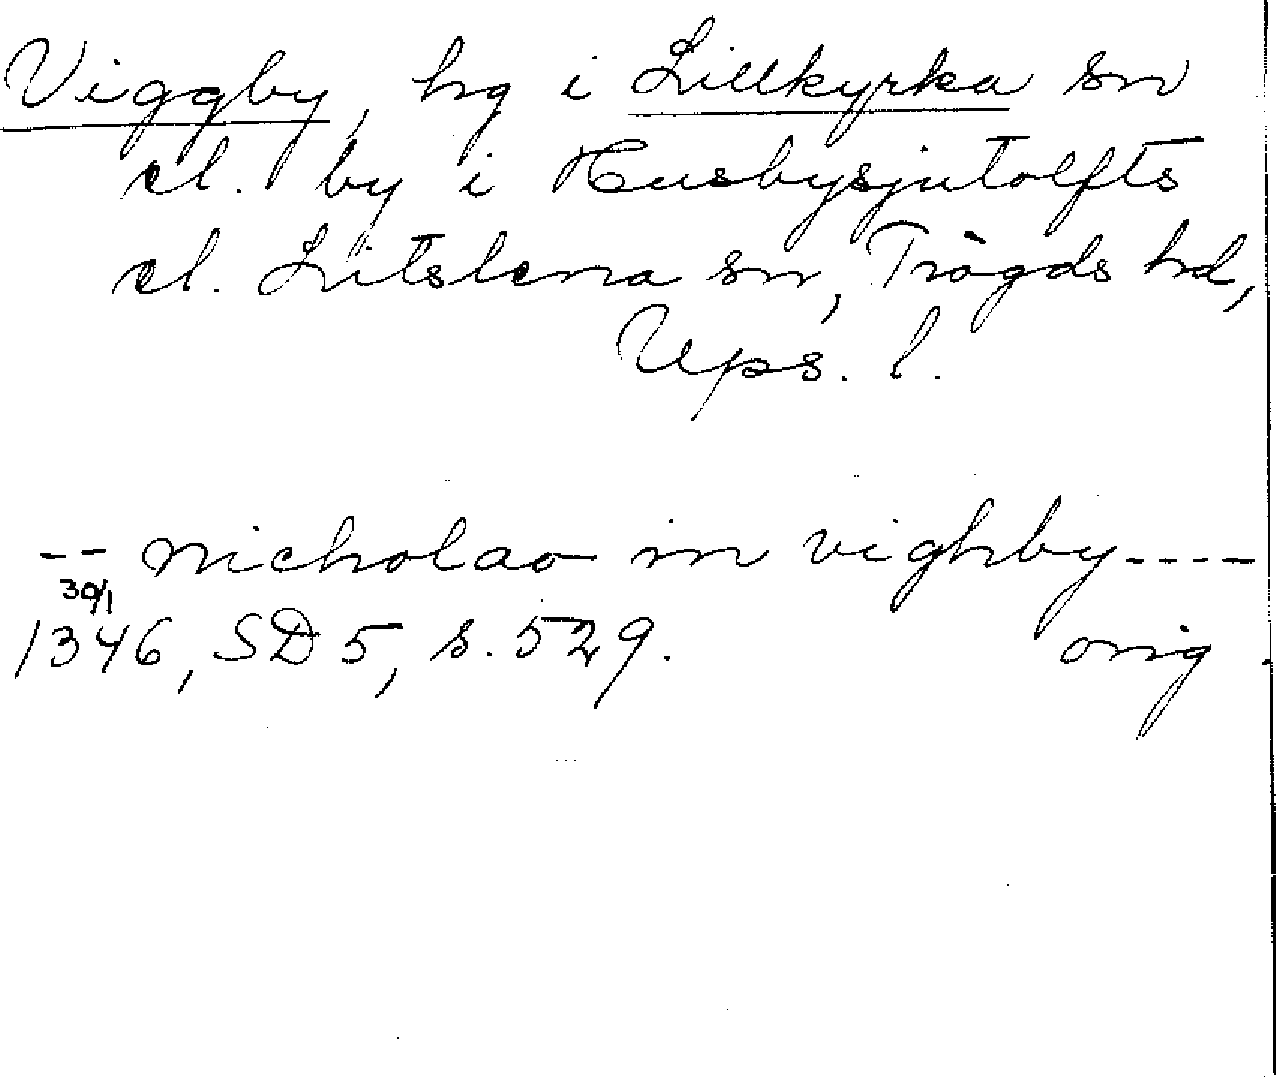 Viggby, hg i Lillkyrka sn
el. by i Husbysjutolfts
el. Litslena sn, Trögds hd,
Ups. l.
-- nicholao in vighby ----
30/1
1346, SD 5, s. 529. orig